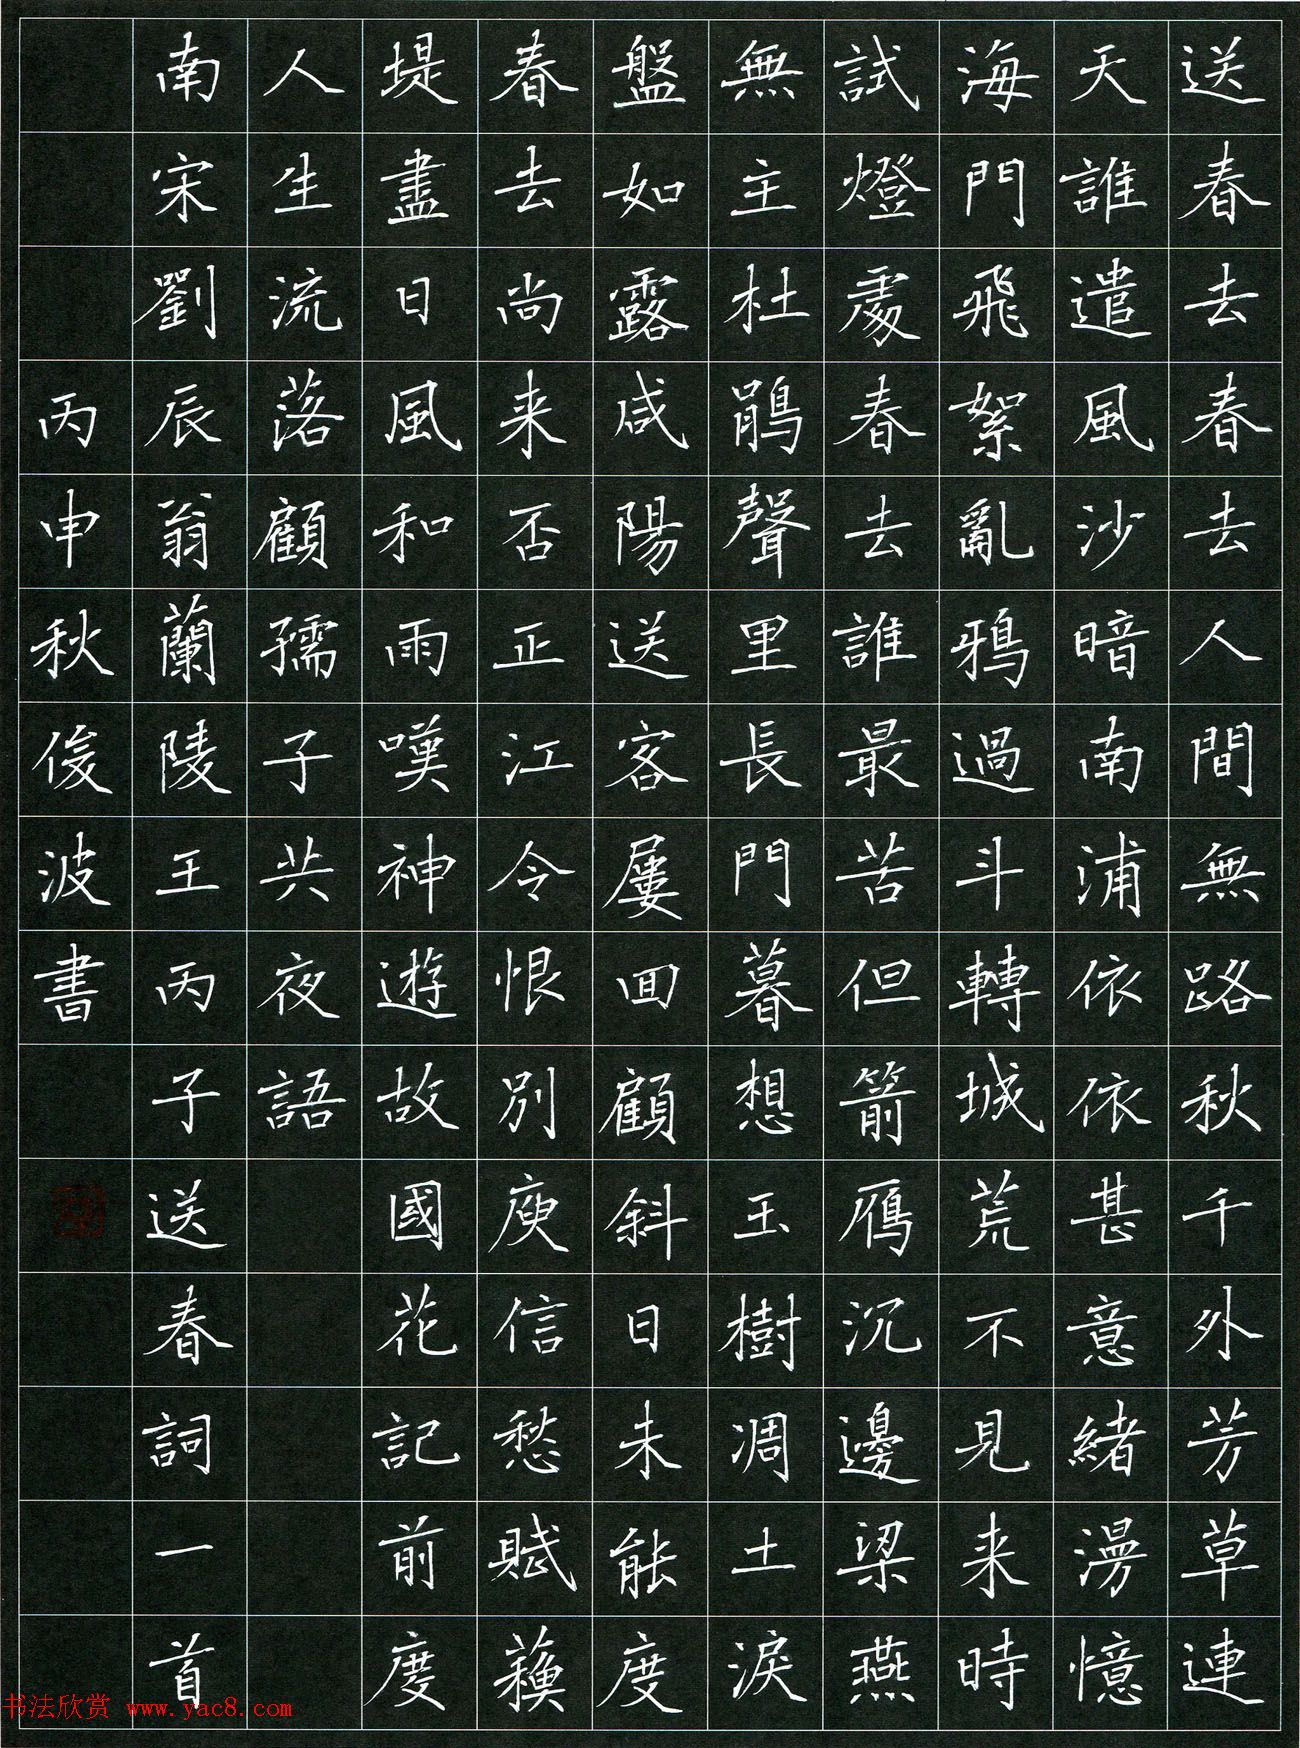 送春去春去人間無路秋千外芳草連
天誰遣風沙暗南浦依依甚意緒漫憶
海門飛絮亂鴉過斗轉城荒不見来時
試燈處春去誰最苦但箭鴈沉邊梁燕
無主杜鵑聲里長門暮想玉樹凋土淚
盤如露咸陽送客屢回顧斜日未能度
春去尚来否正江令恨別庾信愁賦蘓
堤盡日風和雨嘆神遊故國花記前度
人生流落顧孺子共夜語
南宋劉辰翁蘭陵王丙子送春詞一首
丙申秋俊波書
书法欣赏 www.yac8.com